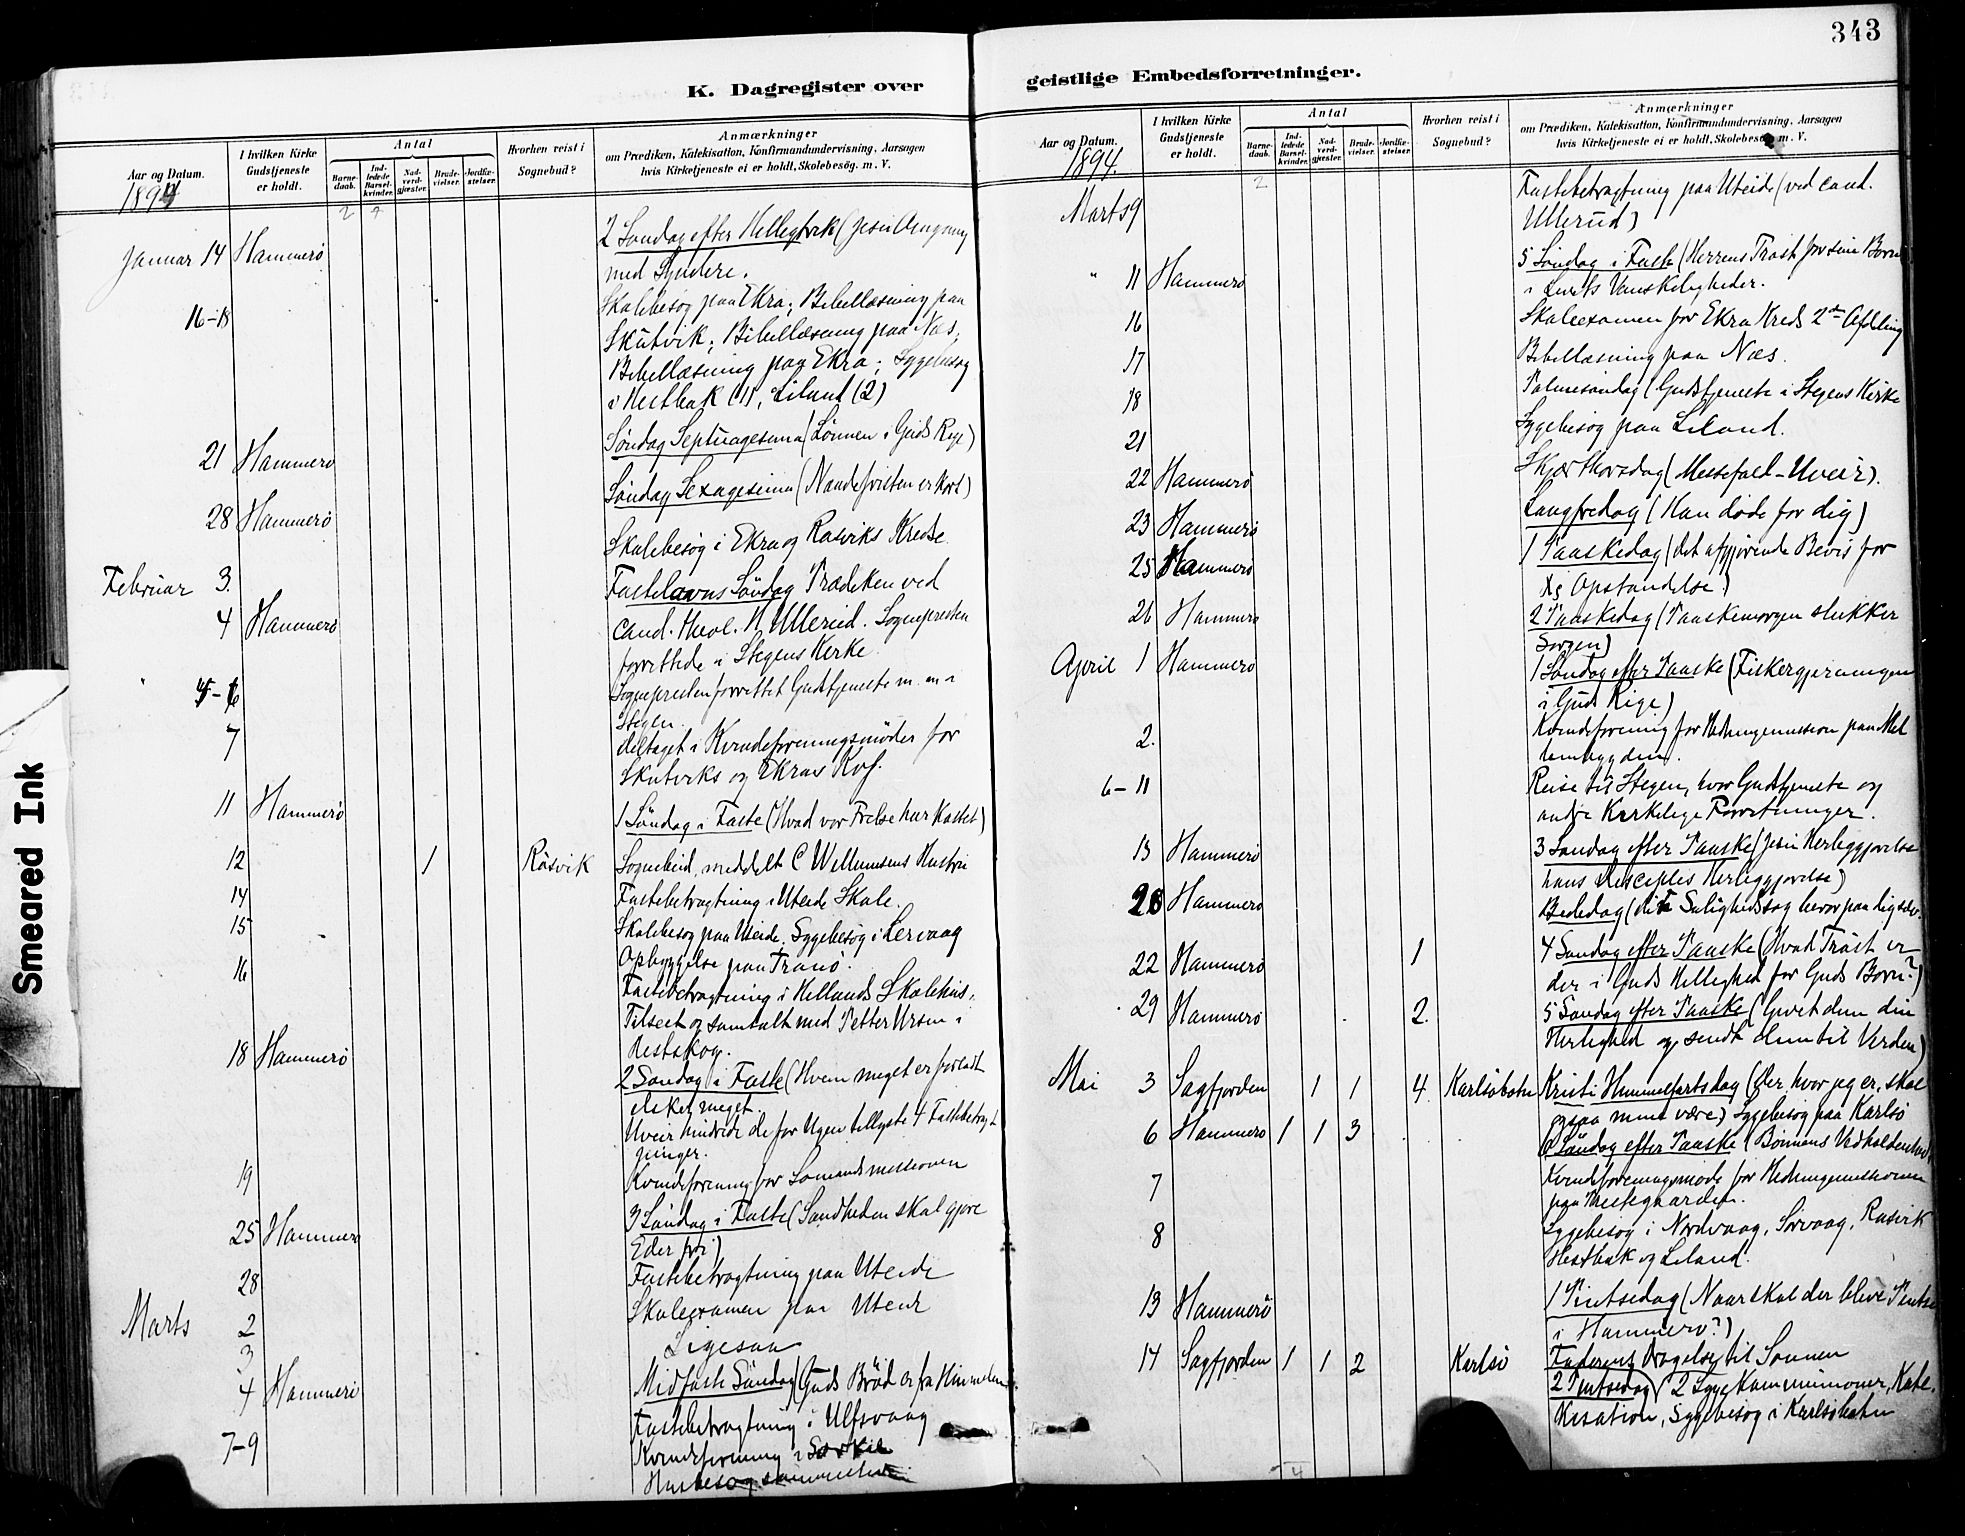 343
K. Dagregister over geistlige Embedsforretninger.
Aar og Datum.
I hvilken Kirke Gudstjeneste er holdt.
Antal
Barnedaab.
Indledede Barselkvinder.
Nadverdgjæster.
Brudevielser.
Jordfæstelser.
Hvorhen reist i Sognebud?
Anmærkninger
om Prædiken, Katekisation, Konfirmandundervisning, Aarsagen
hvis Kirketjeneste ei er holdt, Skolebesøg. m. V.
1894
Januar 14 Hammerø 2 Søndag efter Hellegtrek (Jesu Omgang
med Syndere.
16-18 Skolebesøg paa Ekra; Bibellæsning paa
Skutvik; Bibellæsning paa Næs;
Bibellæsning paa Ekra; Sygebesøg
i Hestbak (1), Liland (2)
21 Hammerø Søndag Septuagesima (Lønnen i Guds Rige)
28 Hammerø Søndag Sexagesima (Naadefristen er kort)
Februar 3. Skolebesøg i Ekra og Rasviks Kredse
4 Hammerø Fastelavns Søndag Prædiken ved
Cand. theol. H. Ullerud. Sognepresten
forrettede i Stegens Kirke
" 5-6 Sognepresten forrettet Gudstjeneste m. m i
Stegen.
7 deltaget i Kvindeforeningsmøder for
Skutviks og Ekras Kvf.
11 Hammerø 1 Søndag i Faste (Hvad vor Frelse har kostet)
12 1 Råsvik Sognebud, meddelt C Willumsens Hustru
14 Fastebetragtning i Uteide Skole.
15 Skolebesøg paa Uteide. Sygebesøg i Lervaag
Opbyggelse paa Tranø.
16 Fastebetragtning i Hellands Skolehus.
Tilseet og samtalt med Petter Ursin i
Hestskog.
18 Hammerø 2 Søndag i Faste (Hvem meget er forladt
elsker meget.
Uveir hindrede de for Ugen tillyste 4 Fastebetragt
ninger.
19 Kvindeforening for Sømandsmissionen
25 Hammerø 3 Søndag i Faste (Sandheden skal gjøre
Eder fri)
28 Fastebetragtning paa Uteide
Marts 2 Skoleexamen paa Uteide
3 Ligesaa
4 Hammerø Midfaste Søndag (Guds Brød er fra Himmelen
7-9 Fastebetragtning i Ulfsvaag
Kvindeforening i
Husbesøg sammesteds
Aar og Datum.
I hvilken Kirke Gudstjeneste er holdt.
Antal
Barnedaab.
Indledede Barselkvinder.
Nadverdgjæster.
Brudevielser.
Jordfæstelser.
Hvorhen reist i Sognebud?
Anmærkninger
om Prædiken, Katekisation, Konfirmandundervisning, Aarsagen
hvis Kirketjeneste ei er holdt, Skolebesøg. m. V.
1894.
Marts 9 Fastebetragtning paa Uteide (ved cand.
Ullerud)
" 11 Hammerø 5 Søndag i Faste (Herrens Trøst for sine Børn
i Livets Vanskeligheder.
16 Skoleexamen for Ekra Kreds 2den Afdeling
17 Bibellæsning paa Næs.
18 Palmesøndag (Gudstjeneste i Stegens Kirke
21 Sygebesøg paa Liland.
22 Hammerø Skjærthorsdag (Messefald - Uveir).
23 Hammerø Langfredag (Han døde for dig)
25 Hammerø 1 Paaskedag (det afgjørende Bevis for
Xs Opstandelse)
26 Hammerø 2 Paaskedag (Paaskemorgen slukker
Sorgen)
April 1 Hammerø 1 Søndag efter Paaske (Fiskergjerningen
i Guds Rige)
2. Kvindeforening for Hedningemission paa Mel
lembygden.
6-11 Reise til Stegen, hvor Gudstjeneste og
andre Kirkelige Forretninger.
15 Hammerø 3 Søndag efter Paaske (Jesu Herliggjørelse
hans Disciples Herliggjørelse)
20 Hammerø Bededag (din Salighedssag beror paa dig selv.
22 Hammerø 1 4 Søndag efter Paaske (Hvad Trøst er
der i Guds Hellighed for Guds Børn?)
29 Hammerø 2. 5 Søndag efter Paaske (Givet dem din
Herlighed og sendt dem til Verden)
Mai 3 Sagfjorden 1 1 4 Karlsöbotn Kristi Himmelfartsdag (der hvor jeg er, skal
ogsaa mine være) Sygebesøg paa Karlsö
6 Hammerø 1 1 3 6 Søndag efter Paaske (Bønnens Vedholdenhed)
7 Kvindeforeningsmøde for Hedningemissionen
paa Prestegaarden.
8 Sygebesøg i Nordvaag, Sørvaag, Rasvik
Hestbak og Liland.
13 Hammerø 1 Pintsedag (Naar skal der blive Pintse
i Hammerø?)
14 Sagfjorden 1 1 2 Karlsö Faderens Dragelse til Sønnen
2 Pintsedag 2 Sygekommunioner, Kate-
kisation, Sygebesøg i Karlsöbotn
Smeared Ink